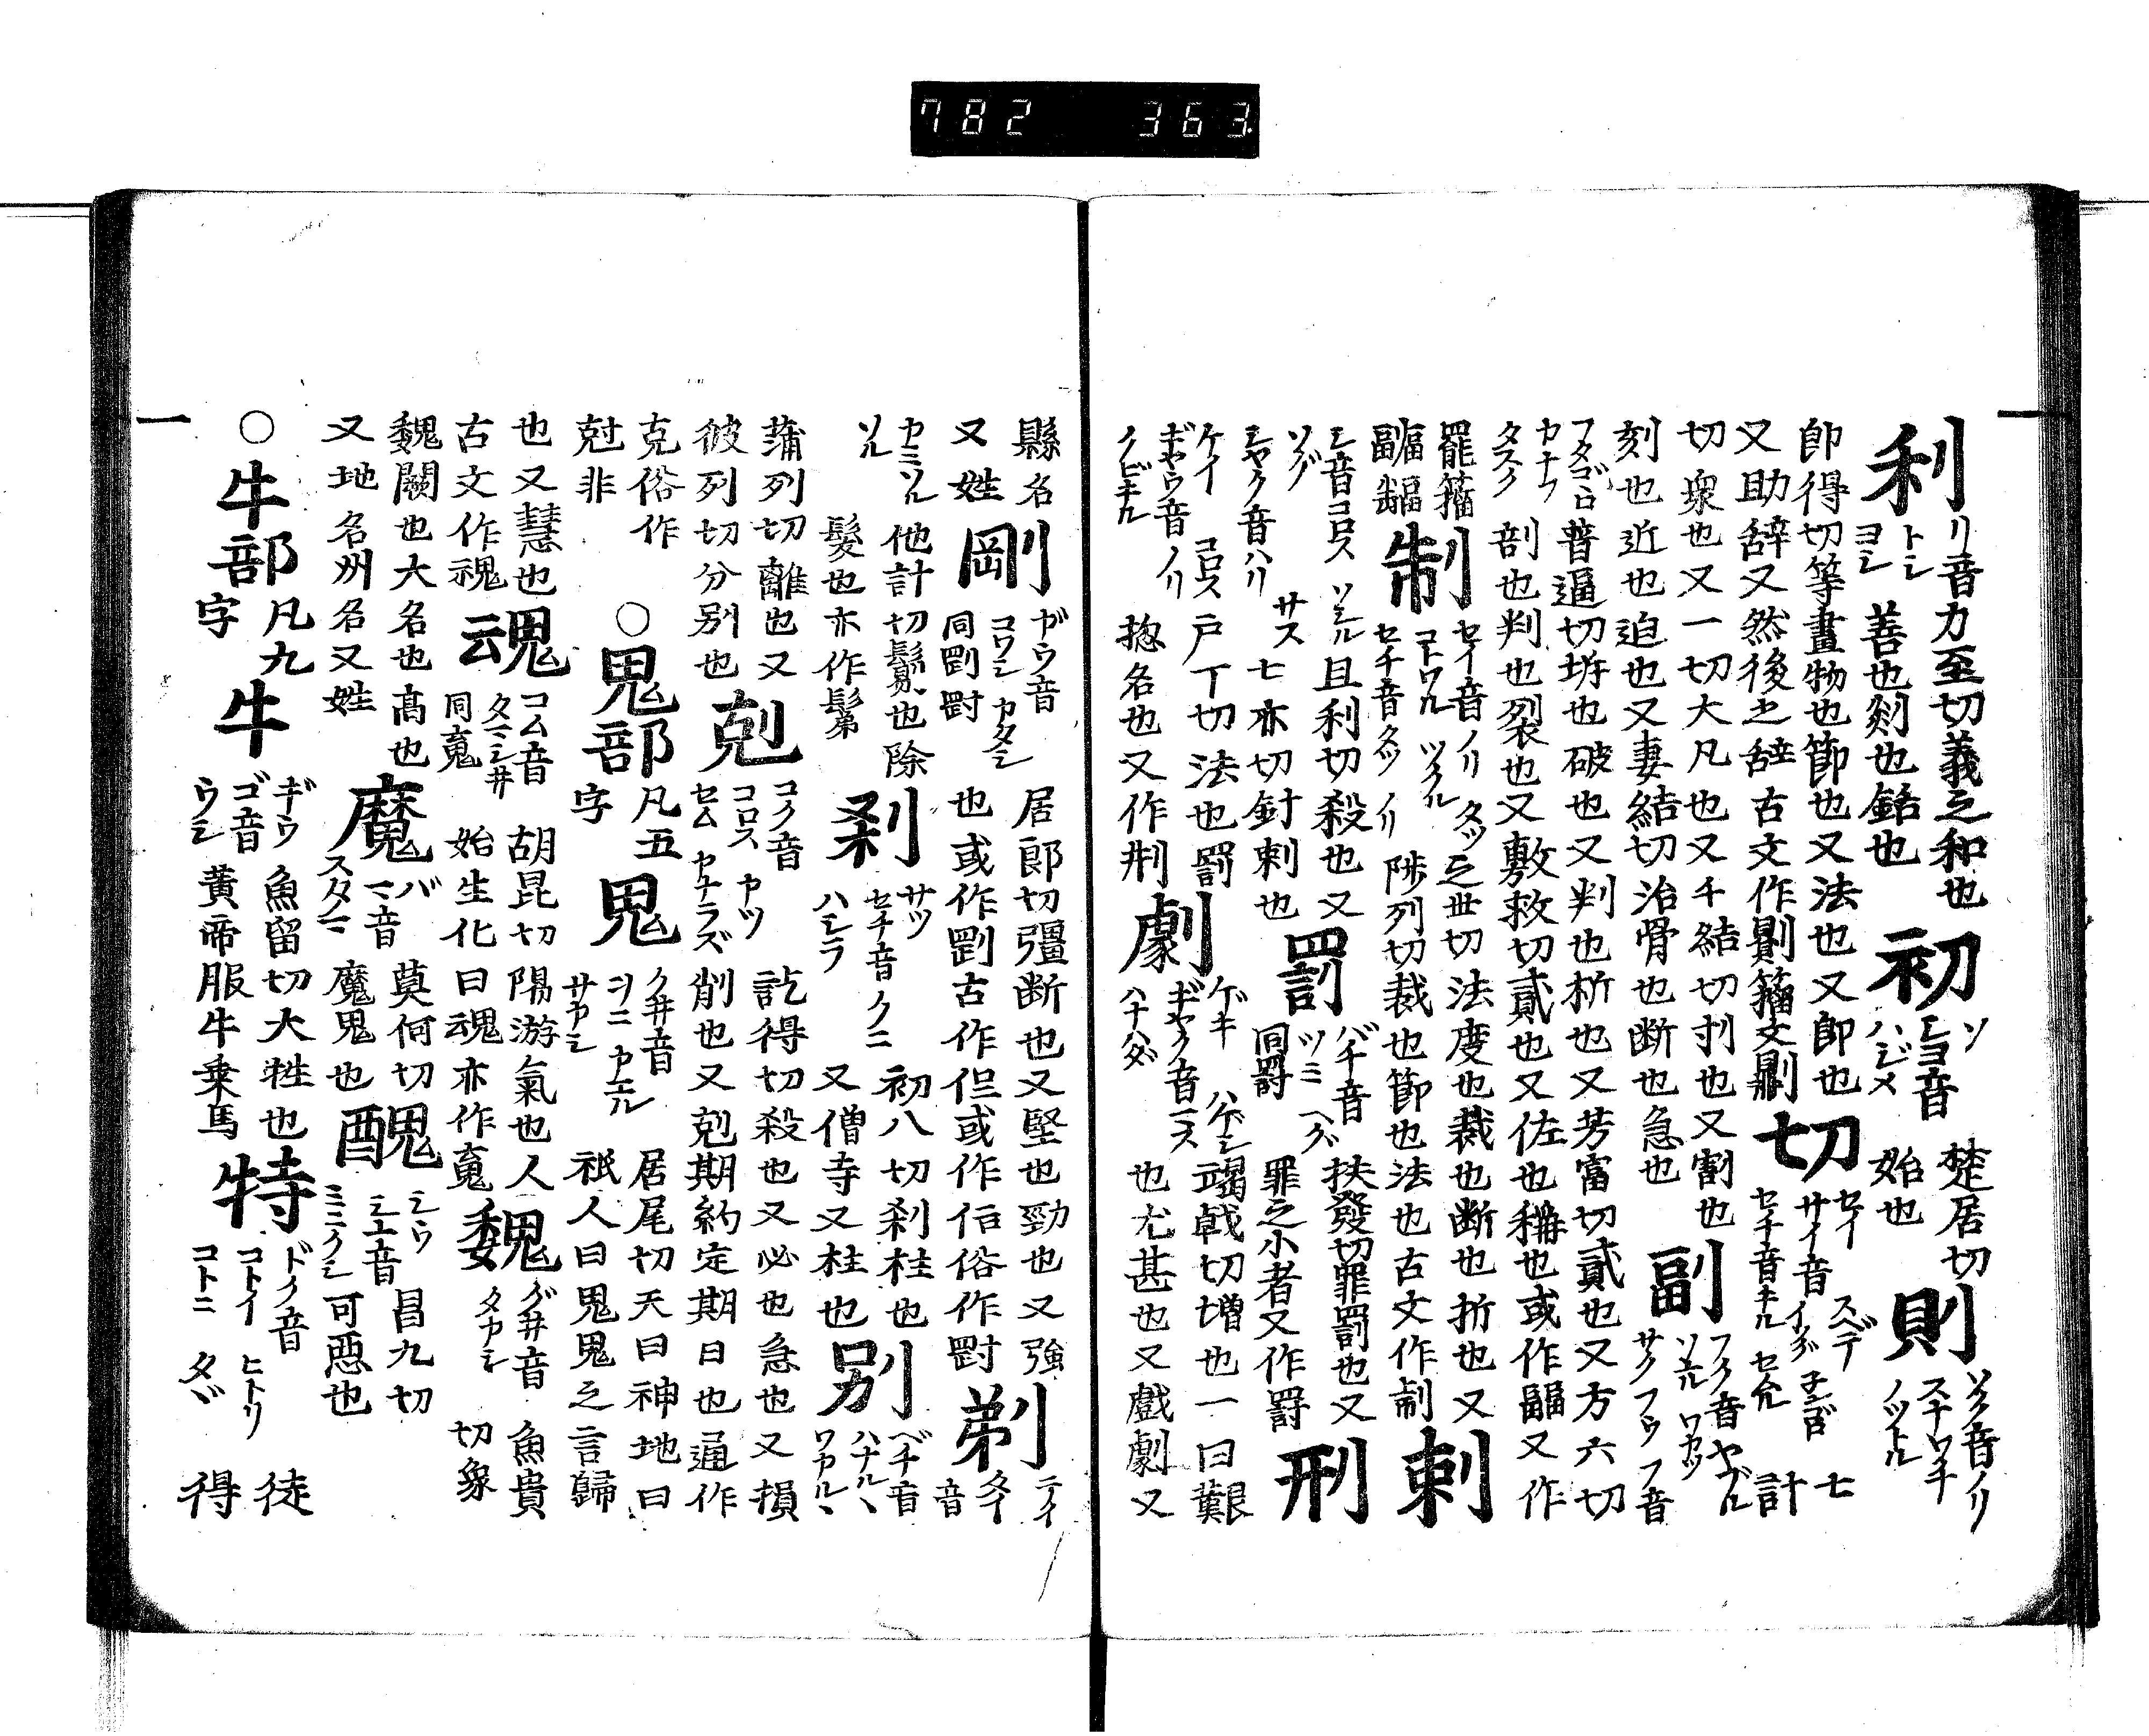 782 363
利 リ音 トシ ヨシ 力至切義之和也 善也剡也銛也 初 ソ シヨ音 ハジメ 楚居切 始也 則 ソク音ノリ スナワチ ノツトル
即得切等畫物也節也又法也又即也
又助辞又然後之辞古文作㓷籀文劓 切 セイ サイ音 セチ音キル スデ 七計
切衆也又一切大凡也又千結切刌也又割也
刻也近也迫也又妻結切治骨也断也急也 副 フク音ヤブル ソエル ワカツ サク フウ フ音
フタゴヽロ カナフ タスク 普逼切坼也破也又判也析也又芳富切貳也又方六切
剖也判也裂也又敷救切貳也又佐也稱也或作 又作
罷籀 制 セイ音ノリ タツ コトワル ツクル セチ音タツ ノリ 之世切法度也裁也断也折也又
陟列切裁也節也法也古文作 刺
シ音コロス ソシル ソグ シヤク音ハリ サス 且利切殺也又 七亦切針刺也 罰 バチ音 ツミ 同罸 扶發切罪罰也又 罪之小者又作罸 刑
ケイ コロス ギヤウ音ノリ ノビキル 戸丁切法也罰 揔名也又作㓝 劇 ゲキ ハゲシ ギヤク音 ハナハダ 竭戟切増也一曰艱 也尤甚也又戲劇又
縣名 又姓 剛 ガウ音 コワシ カタシ 同㓻 居郎切彊断也又堅也勁也又強 也或作㓻古作 或作 俗作 剃 テイ タイ音
カミソル ソル 他計切鬄也除 髮也亦作髴 刹 サツ セチ音クニ ハシラ 初八切刹柱也 又僧寺又柱也 別 ベチ音 ハナルヽ ワカルヽ
蒲列切離也又 彼列切分別也 剋 コク音 コロス カツ セム カナラズ 訖得切殺也又必也急也又損 削也又剋期約定期日也通作
克俗作 尅非 ○鬼部 凡五字 鬼 クヰ音 ヲニ カエル サカシ 居尾切天曰神地曰 祇人曰鬼鬼之言歸
也又慧也 古文作䰠 魂 コム音 タマシヰ 同䰟 胡昆切 始生化 陽游氣也人 曰魂亦作䰟 魏 グヰ音 タカシ 魚貴 切象
魏闕也大名也高也 又地名州名又姓 魔 バ マ音 スタマ 莫何切 魔鬼也 醜 シウ シユ音 ミニクシ 昌九切 可惡也
○牛部 凡九字 牛 ギウ ゴ音 ウシ 魚留切大牲也 黄帝服牛乗馬 特 ドク音 コトイ ヒトリ コトニ タヾ 徒得